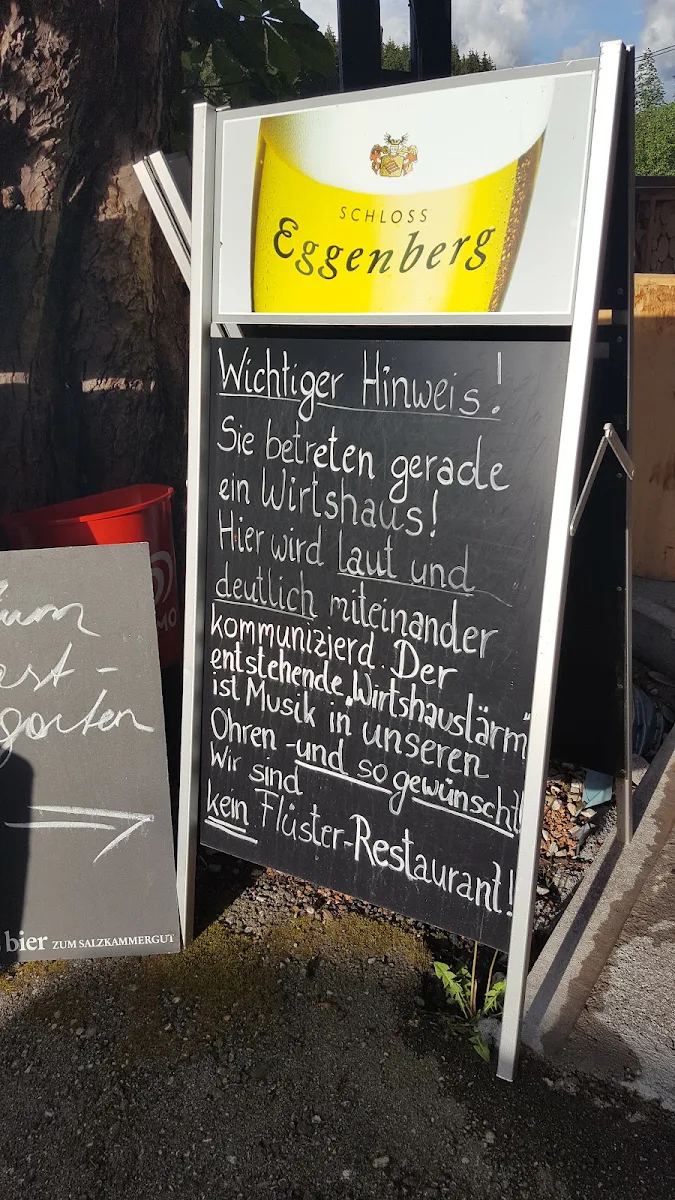 SCHLOSS
Eggenberg
Wichtiger Hinweis!
Sie betreten gerade
ein Wirtshaus!
Hier wird laut und
deutlich miteinander
kommunizierd. Der
entstehende „Wirtshauslärm"
ist Musik in unseren
Ohren - und so gewünscht!
Wir sind
kein Flüster-Restaurant!
zum
ast-
garten
bier ZUM SALZKAMMERGUT
MO